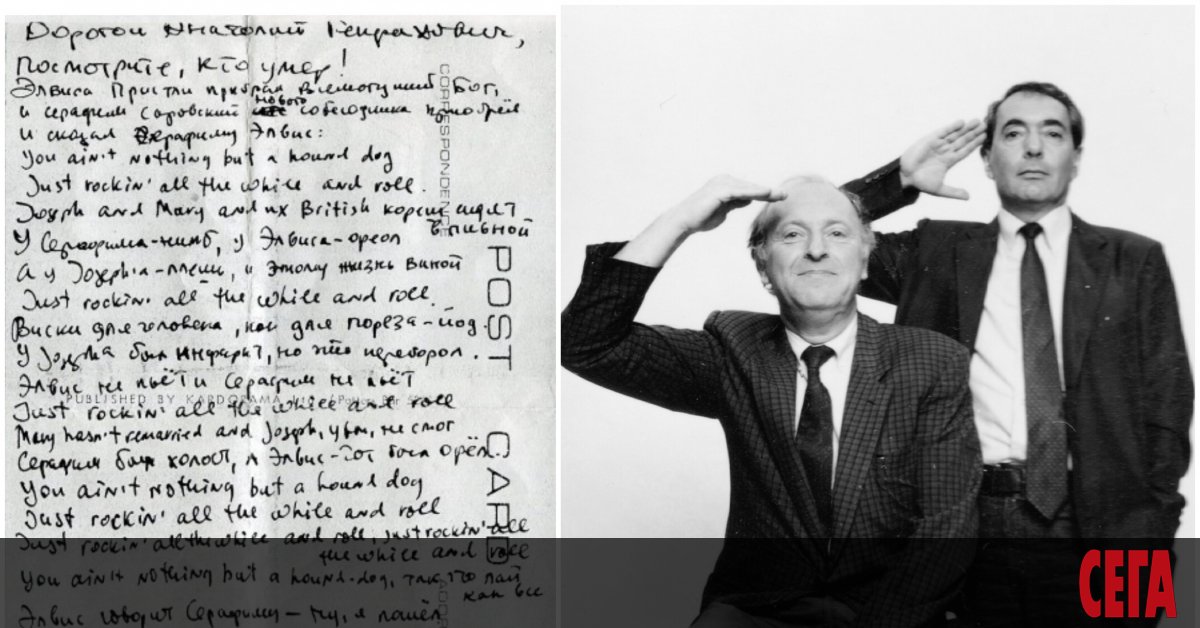 Дорогой Анатолий Генрихович,
посмотрите, кто умер!
Элвиса Пресли прибрал всемогущий Бог,
и Серафим Саровский нового собеседника приобрёл
и сказал Серафиму Элвис:
You ain't nothing but a hound dog
Just rockin' all the while and roll.
Joseph and Mary and их British кореш идят
в пивной
У Серафима-нимб, у Элвиса-ореол
а у Joseph'а-плешь, и этому жизнь виной
Just rockin' all the while and roll.
Виски для человека, как для пореза-йод.
У Joseph'а был инфаркт, но это переборол.
Элвис не пьёт и Серафим не пьёт
Just rockin' all the while and roll
Mary hasn't remarried and Joseph, увы, не смог
Серафим был холост, а Элвис-тот был орёл.
You ain't nothing but a hound dog
Just rockin' all the while and roll
Just rockin' all the while and roll, just rockin' all
the while and roll
You ain't nothing but a hound-dog, так что лай
как все
Элвис говорит Серафиму — ну, я пошёл
CORRESPONDENCE
POST CARD
PUBLISHED BY KARDORAMA
СЕГА